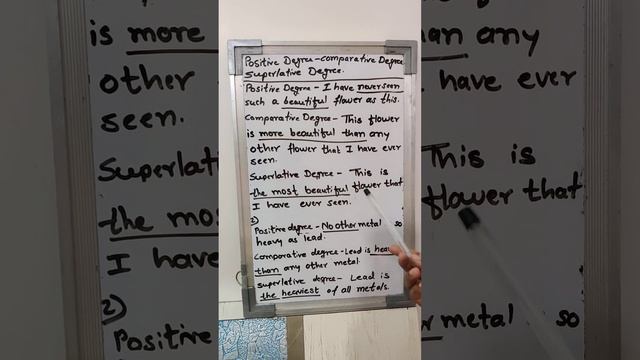 Positive Degree-comparative Degree
Superlative Degree.
Positive Degree - I have never seen
such a beautiful flower as this.
Comparative Degree - This flower
is more beautiful than any
other flower that I have ever
seen.
Superlative Degree - This is
the most beautiful flower that
I have ever seen.
2)
Positive degree - No other metal so
heavy as lead.
Comparative degree - Lead is heav
than any other metal.
Superlative degree - Lead is
the heaviest of all metals.